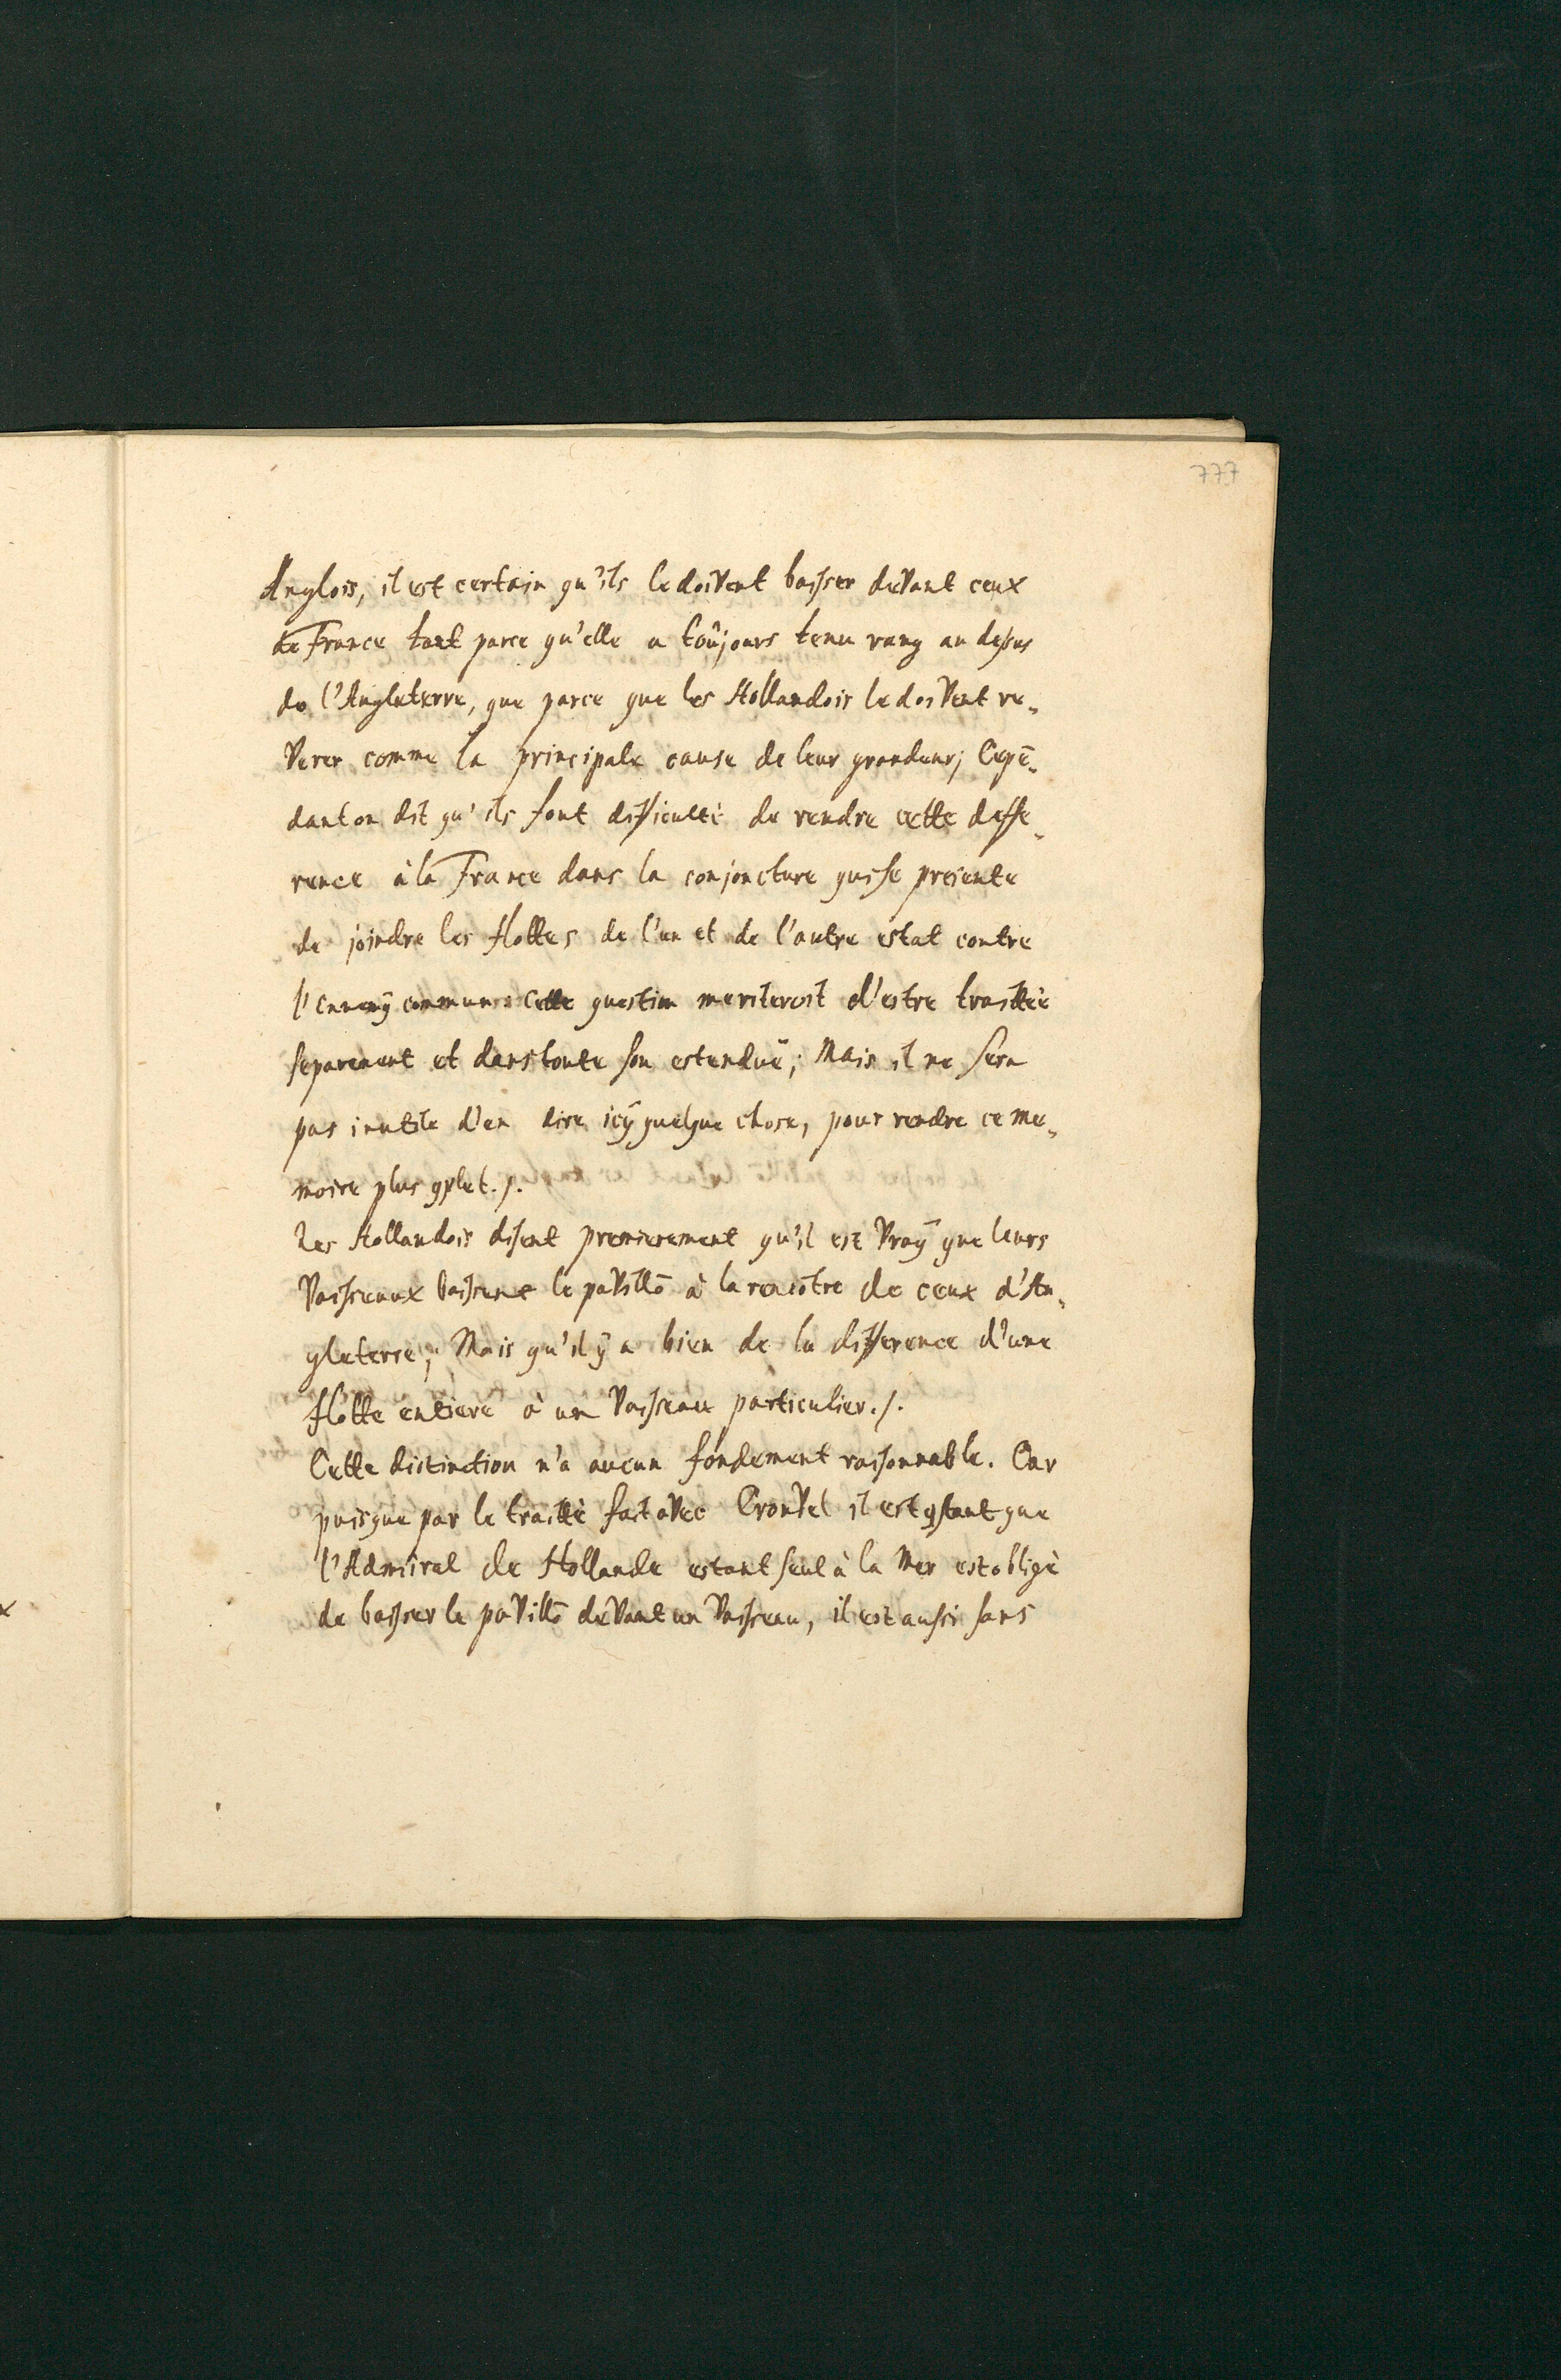 777
Anglois, il est certain qu'ils le doivent baisser devant ceux
de France tant parce qu'elle a toûjours tenu rang au dessus
de l'Angleterre, que parce que les Hollandois le doivent re-
verer comme la principale cause de leur grandeur; Cepē-
dant on dit qu'ils font difficulté de rendre cette deffe-
rence à la France dans la conjoncture qui se presente
de joindre les flottes de l'un et de l'autre estat contre
l'ennemÿ commun: Cette question meriteroit d'estre traittée
separement et dans toute son estenduë; Mais il ne sera
pas inutile d'en dire icÿ quelque chose, pour rendre ce me-
moire plus 9plet./.
Les Hollandois disent premierement qu'il est vraÿ que leurs
vaisseaux baissent le pavillō à la rencōtre de ceux d'An-
gleterre; Mais qu'il ÿ a bien de la difference d'une
flotte entiere à un vaisseau particulier./.
Cette distinction n'a aucun fondement raisonnable. Car
puisque par le traitté fait avec Cromvel il est 9stant que
l'Admiral de Hollande estant seul à la Mer est obligé
de baisser le pavillō devant un vaisseau, il est aussi sans